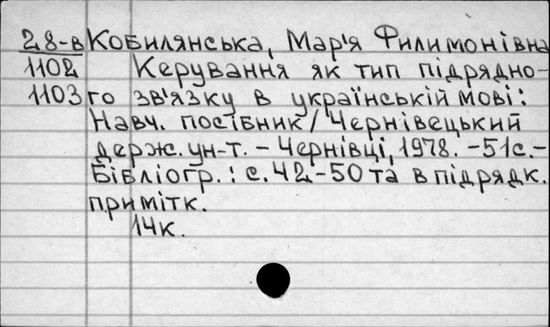 28-в Кобилянська, Мар'я Филимонівна
1102 Керування як тип підрядно-
1103 го зв'язку в українській мові:
Навч. посібник / Чернівецький
держ. ун-т. – Чернівці, 1978. – 51с. –
Бібліогр.: с. 42–50 та в підрядк.
примітк.
14к.